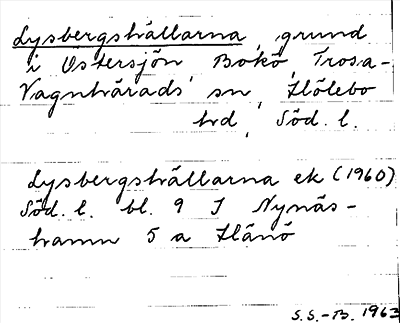 Lysbergshällarna, grund
i Östersjön, Bokö, Trosa-
Vagnhärads sn, Hölebo
hd, Söd. l.
Lysbergshällarna ek (1960)
Söd. l. bl. 9 I Nynäs-
hamn 5 a Hånö
S.S.-B. 1963